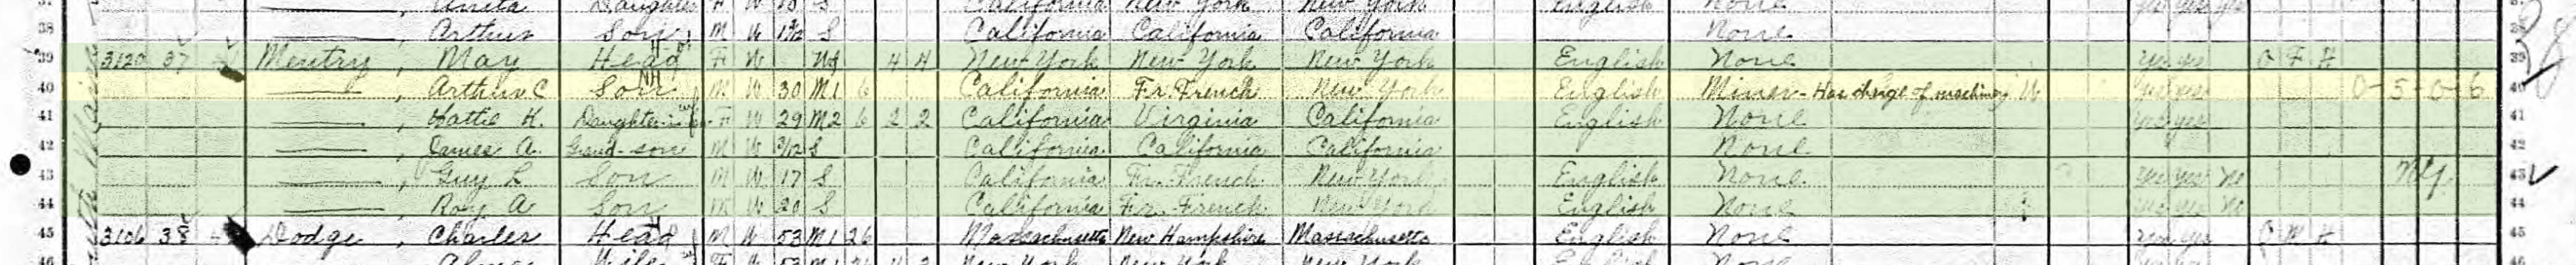 Anita Daughter F W 13 S California New York New York English None yes yes yes
38 Arthur Son M W 1 9/12 S California California California None 38
39 3120 37 Mentry, May Head F W Wd 4 4 New York New York New York English None yes yes O F H 39
40 ———, Arthur C Son NH M W 30 M1 6 California Fr. French New York English Miner - Has charge of machinery W yes yes 0-5-0-6 40
41 ———, Hattie H. Daughter-in-law F W 29 M2 6 2 2 California Virginia California English None yes yes 41
42 ———, James A. Grand-son M W /12 S California California California None 42
43 ———, Guy L Son M W 17 S California Fr. French New York English None yes yes No 43
44 ———, Roy A Son M W 20 S California Fr. French New York English None yes yes No 44
45 3106 38 Dodge, Charles Head M W 53 M1 26 Massachusetts New Hampshire Massachusetts English None yes yes O H 45
46 Wife F W 53 M1 New York New York New York English None 46